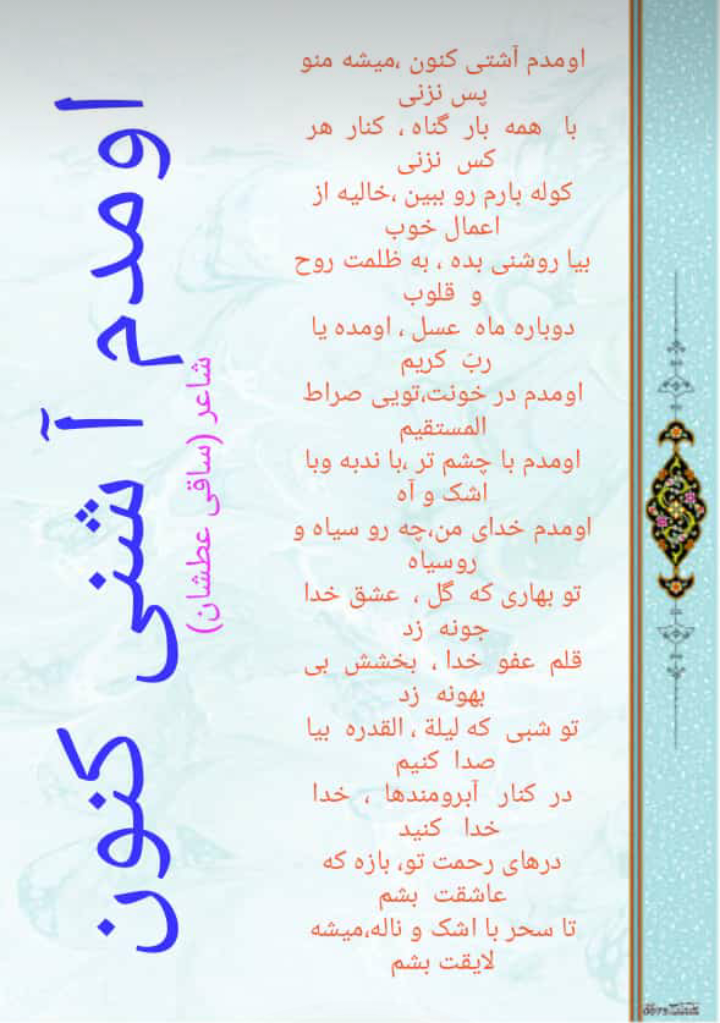 اومدم آشتی کنون
شاعر (ساقی عطشان)
اومدم آشتی کنون ،میشه منو
پس نزنی
با همه بار گناه ، کنار هر
کس نزنی
کوله بارم رو ببین ،خالیه از
اعمال خوب
بیا روشنی بده ، به ظلمت روح
و قلوب
دوباره ماه عسل ، اومده یا
ربَ کریم
اومدم در خونت،تویی صراط
المستقیم
اومدم با چشم تر ،با ندبه وبا
اشک و آه
اومدم خدای من،چه رو سیاه و
روسیاه
تو بهاری که گل ، عشق خدا
جونه زد
قلم عفو خدا ، بخشش بی
بهونه زد
تو شبی که لیلة ، القدره بیا
صدا کنیم
در کنار آبرومندها ، خدا
خدا کنید
درهای رحمت تو، بازه که
عاشقت بشم
تا سحر با اشک و ناله،میشه
لایقت بشم